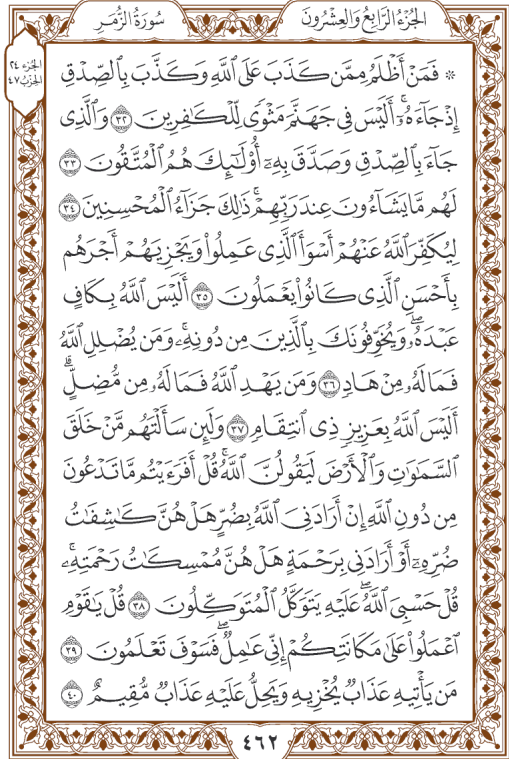 الجُزْءُ الرَّابِعُ وَالعِشْرُونَ
سُورَةُ الزُّمَرِ
الجزء ٢٤
الحزب ٤٧
۞ فَمَنْ أَظْلَمُ مِمَّن كَذَبَ عَلَى ٱللَّهِ وَكَذَّبَ بِٱلصِّدْقِ
إِذْ جَآءَهُۥٓۚ أَلَيْسَ فِي جَهَنَّمَ مَثْوًى لِّلْكَٰفِرِينَ ٣٢ وَٱلَّذِي
جَآءَ بِٱلصِّدْقِ وَصَدَّقَ بِهِۦٓ أُوْلَٰٓئِكَ هُمُ ٱلْمُتَّقُونَ ٣٣
لَهُم مَّا يَشَآءُونَ عِندَ رَبِّهِمْۚ ذَٰلِكَ جَزَآءُ ٱلْمُحْسِنِينَ ٣٤
لِيُكَفِّرَ ٱللَّهُ عَنْهُمْ أَسْوَأَ ٱلَّذِي عَمِلُواْ وَيَجْزِيَهُمْ أَجْرَهُم
بِأَحْسَنِ ٱلَّذِي كَانُواْ يَعْمَلُونَ ٣٥ أَلَيْسَ ٱللَّهُ بِكَافٍ
عَبْدَهُۥۖ وَيُخَوِّفُونَكَ بِٱلَّذِينَ مِن دُونِهِۦۚ وَمَن يُضْلِلِ ٱللَّهُ
فَمَا لَهُۥ مِنْ هَادٍ ٣٦ وَمَن يَهْدِ ٱللَّهُ فَمَا لَهُۥ مِن مُّضِلٍّۗ
أَلَيْسَ ٱللَّهُ بِعَزِيزٍ ذِي ٱنتِقَامٍ ٣٧ وَلَئِن سَأَلْتَهُم مَّنْ خَلَقَ
ٱلسَّمَٰوَٰتِ وَٱلْأَرْضَ لَيَقُولُنَّ ٱللَّهُۚ قُلْ أَفَرَءَيْتُم مَّا تَدْعُونَ
مِن دُونِ ٱللَّهِ إِنْ أَرَادَنِيَ ٱللَّهُ بِضُرٍّ هَلْ هُنَّ كَٰشِفَٰتُ
ضُرِّهِۦٓ أَوْ أَرَادَنِي بِرَحْمَةٍ هَلْ هُنَّ مُمْسِكَٰتُ رَحْمَتِهِۦۚ
قُلْ حَسْبِيَ ٱللَّهُۖ عَلَيْهِ يَتَوَكَّلُ ٱلْمُتَوَكِّلُونَ ٣٨ قُلْ يَٰقَوْمِ
ٱعْمَلُواْ عَلَىٰ مَكَانَتِكُمْ إِنِّي عَٰمِلٌۖ فَسَوْفَ تَعْلَمُونَ ٣٩
مَن يَأْتِيهِ عَذَابٌ يُخْزِيهِ وَيَحِلُّ عَلَيْهِ عَذَابٌ مُّقِيمٌ ٤٠
٤٦٢